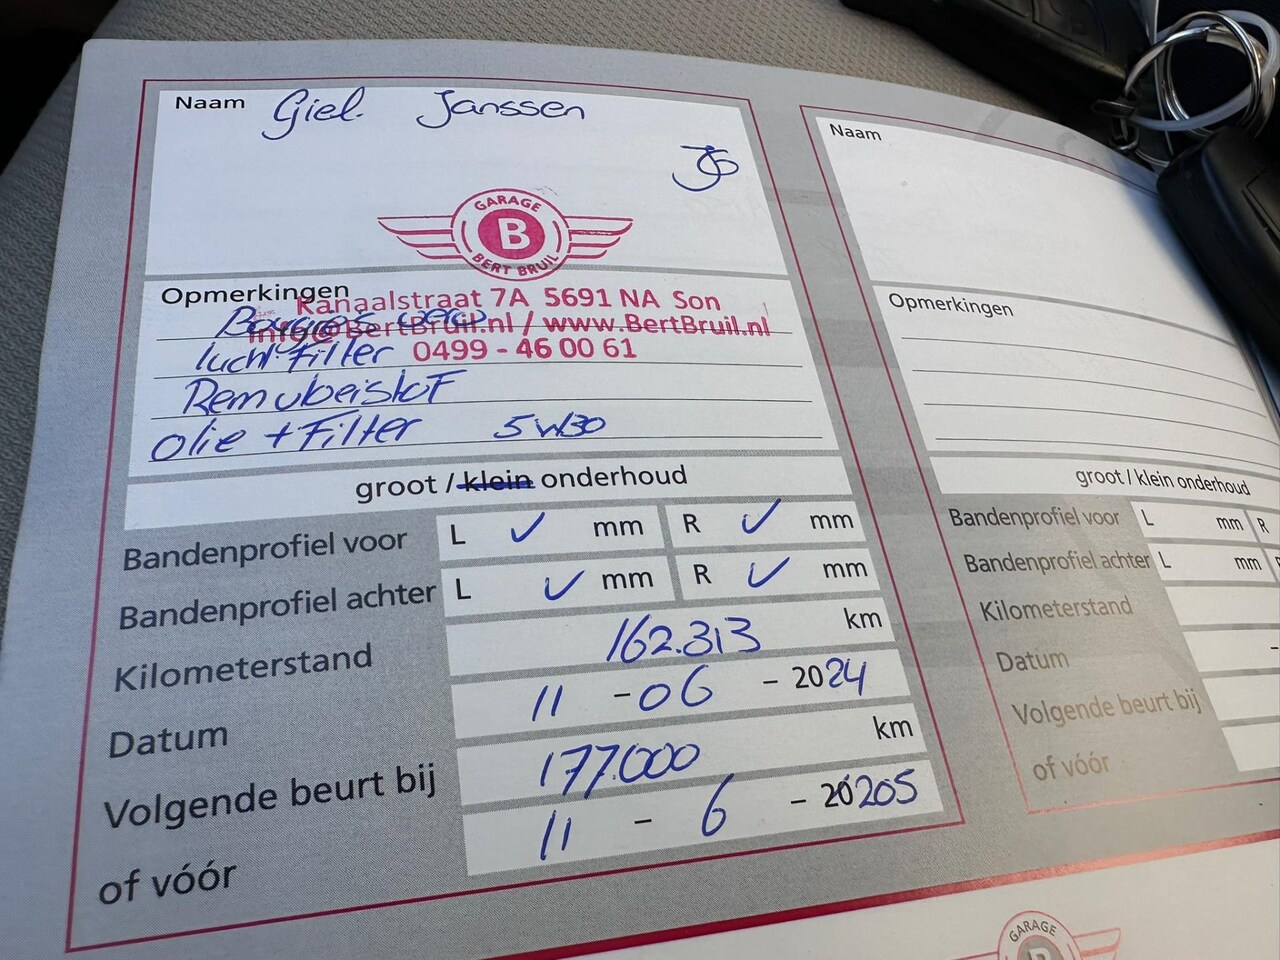 Naam Giel Janssen
JG
GARAGE
B
BERT BRUIL
Opmerkingen
Kanaalstraat 7A 5691 NA Son
Bougies
info@BertBruil.nl / www.BertBruil.nl
luchtfilter 0499 - 46 00 61
Remvloeistof
Olie + Filter 5W30
groot / klein onderhoud
Bandenprofiel voor L ✓ mm R ✓ mm
Bandenprofiel achter L ✓ mm R ✓ mm
Kilometerstand 162.313 km
Datum 11 - 06 - 2024
Volgende beurt bij 177.000 km
of vóór 11 - 6 - 20205
Naam
Opmerkingen
groot / klein onderhoud
Bandenprofiel voor L mm R
Bandenprofiel achter L mm
Kilometerstand
Datum -
Volgende beurt bij
of vóór
GARAGE